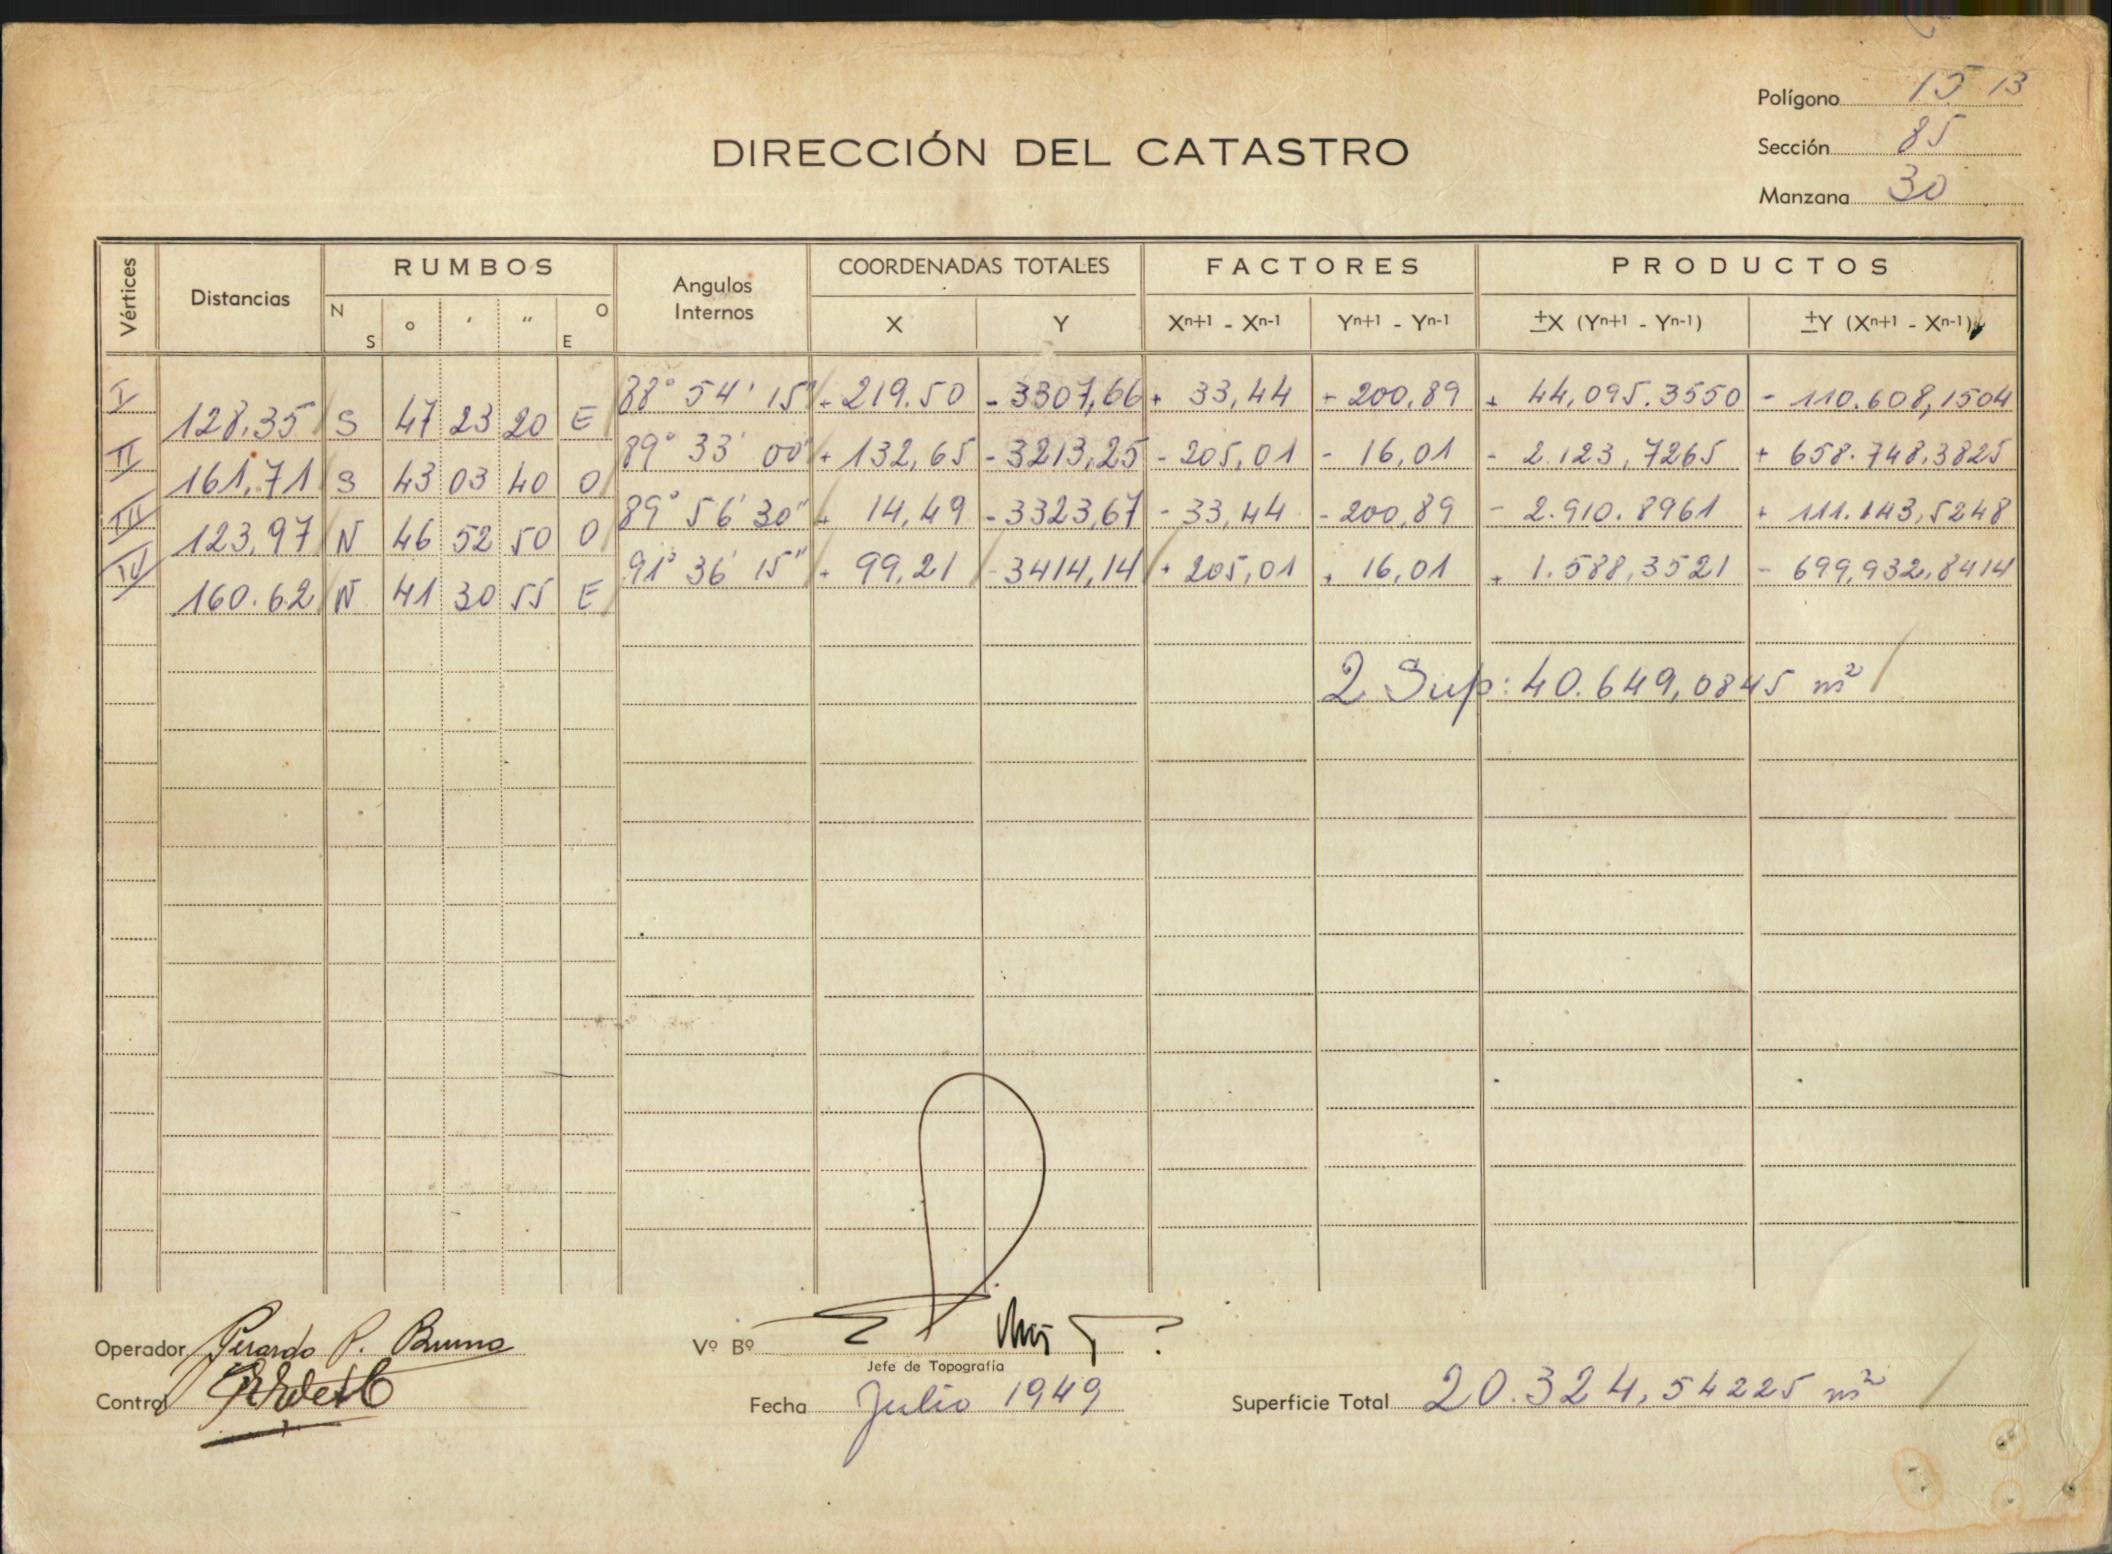 Polígono 15 13
DIRECCIÓN DEL CATASTRO
Sección 85
Manzana 30
Vértices Distancias RUMBOS Angulos Internos COORDENADAS TOTALES FACTORES PRODUCTOS
N S ° ' " O E X Y Xn+1 - Xn-1 Yn+1 - Yn-1 ±X (Yn+1 - Yn-1) ±Y (Xn+1 - Xn-1)
I 88° 54' 15" + 219.50 - 3307,66 + 33,44 + 200,89 + 44,095.3550 - 110.608,1504
128,35 S 47 23 20 E
II 89° 33' 00" + 132,65 - 3213,25 - 205,01 - 16,01 - 2.123,7265 + 658.748.3825
161,71 S 43 03 40 O
III 89° 56' 30" + 14,49 - 3323,67 - 33,44 - 200,89 - 2.910.8961 + 111.143,5248
123,97 N 46 52 50 O
IV 91° 36' 15" + 99,21 - 3414,14 + 205,01 + 16,01 + 1.588,3521 - 699,932,8414
160.62 N 41 30 55 E
2 Sup: 40.649,0845 m²
Operador Gerardo P. Bruno
Vº Bº
Jefe de Topografía
Control
Fecha Julio 1949
Superficie Total 20.324,54225 m²